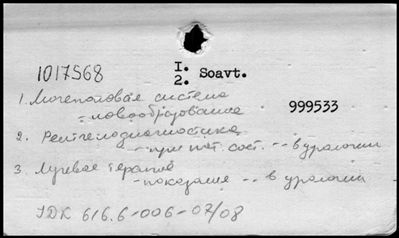 1017568
I.
2. Soavt.
1. Мочеполовая система
- новообразования
999533
2. Рентгенодиагностика
- при пат. сост. -- в урологии
3. Лучевая терапия
- показания -- в урологии
УДК 616.6-006-07/08